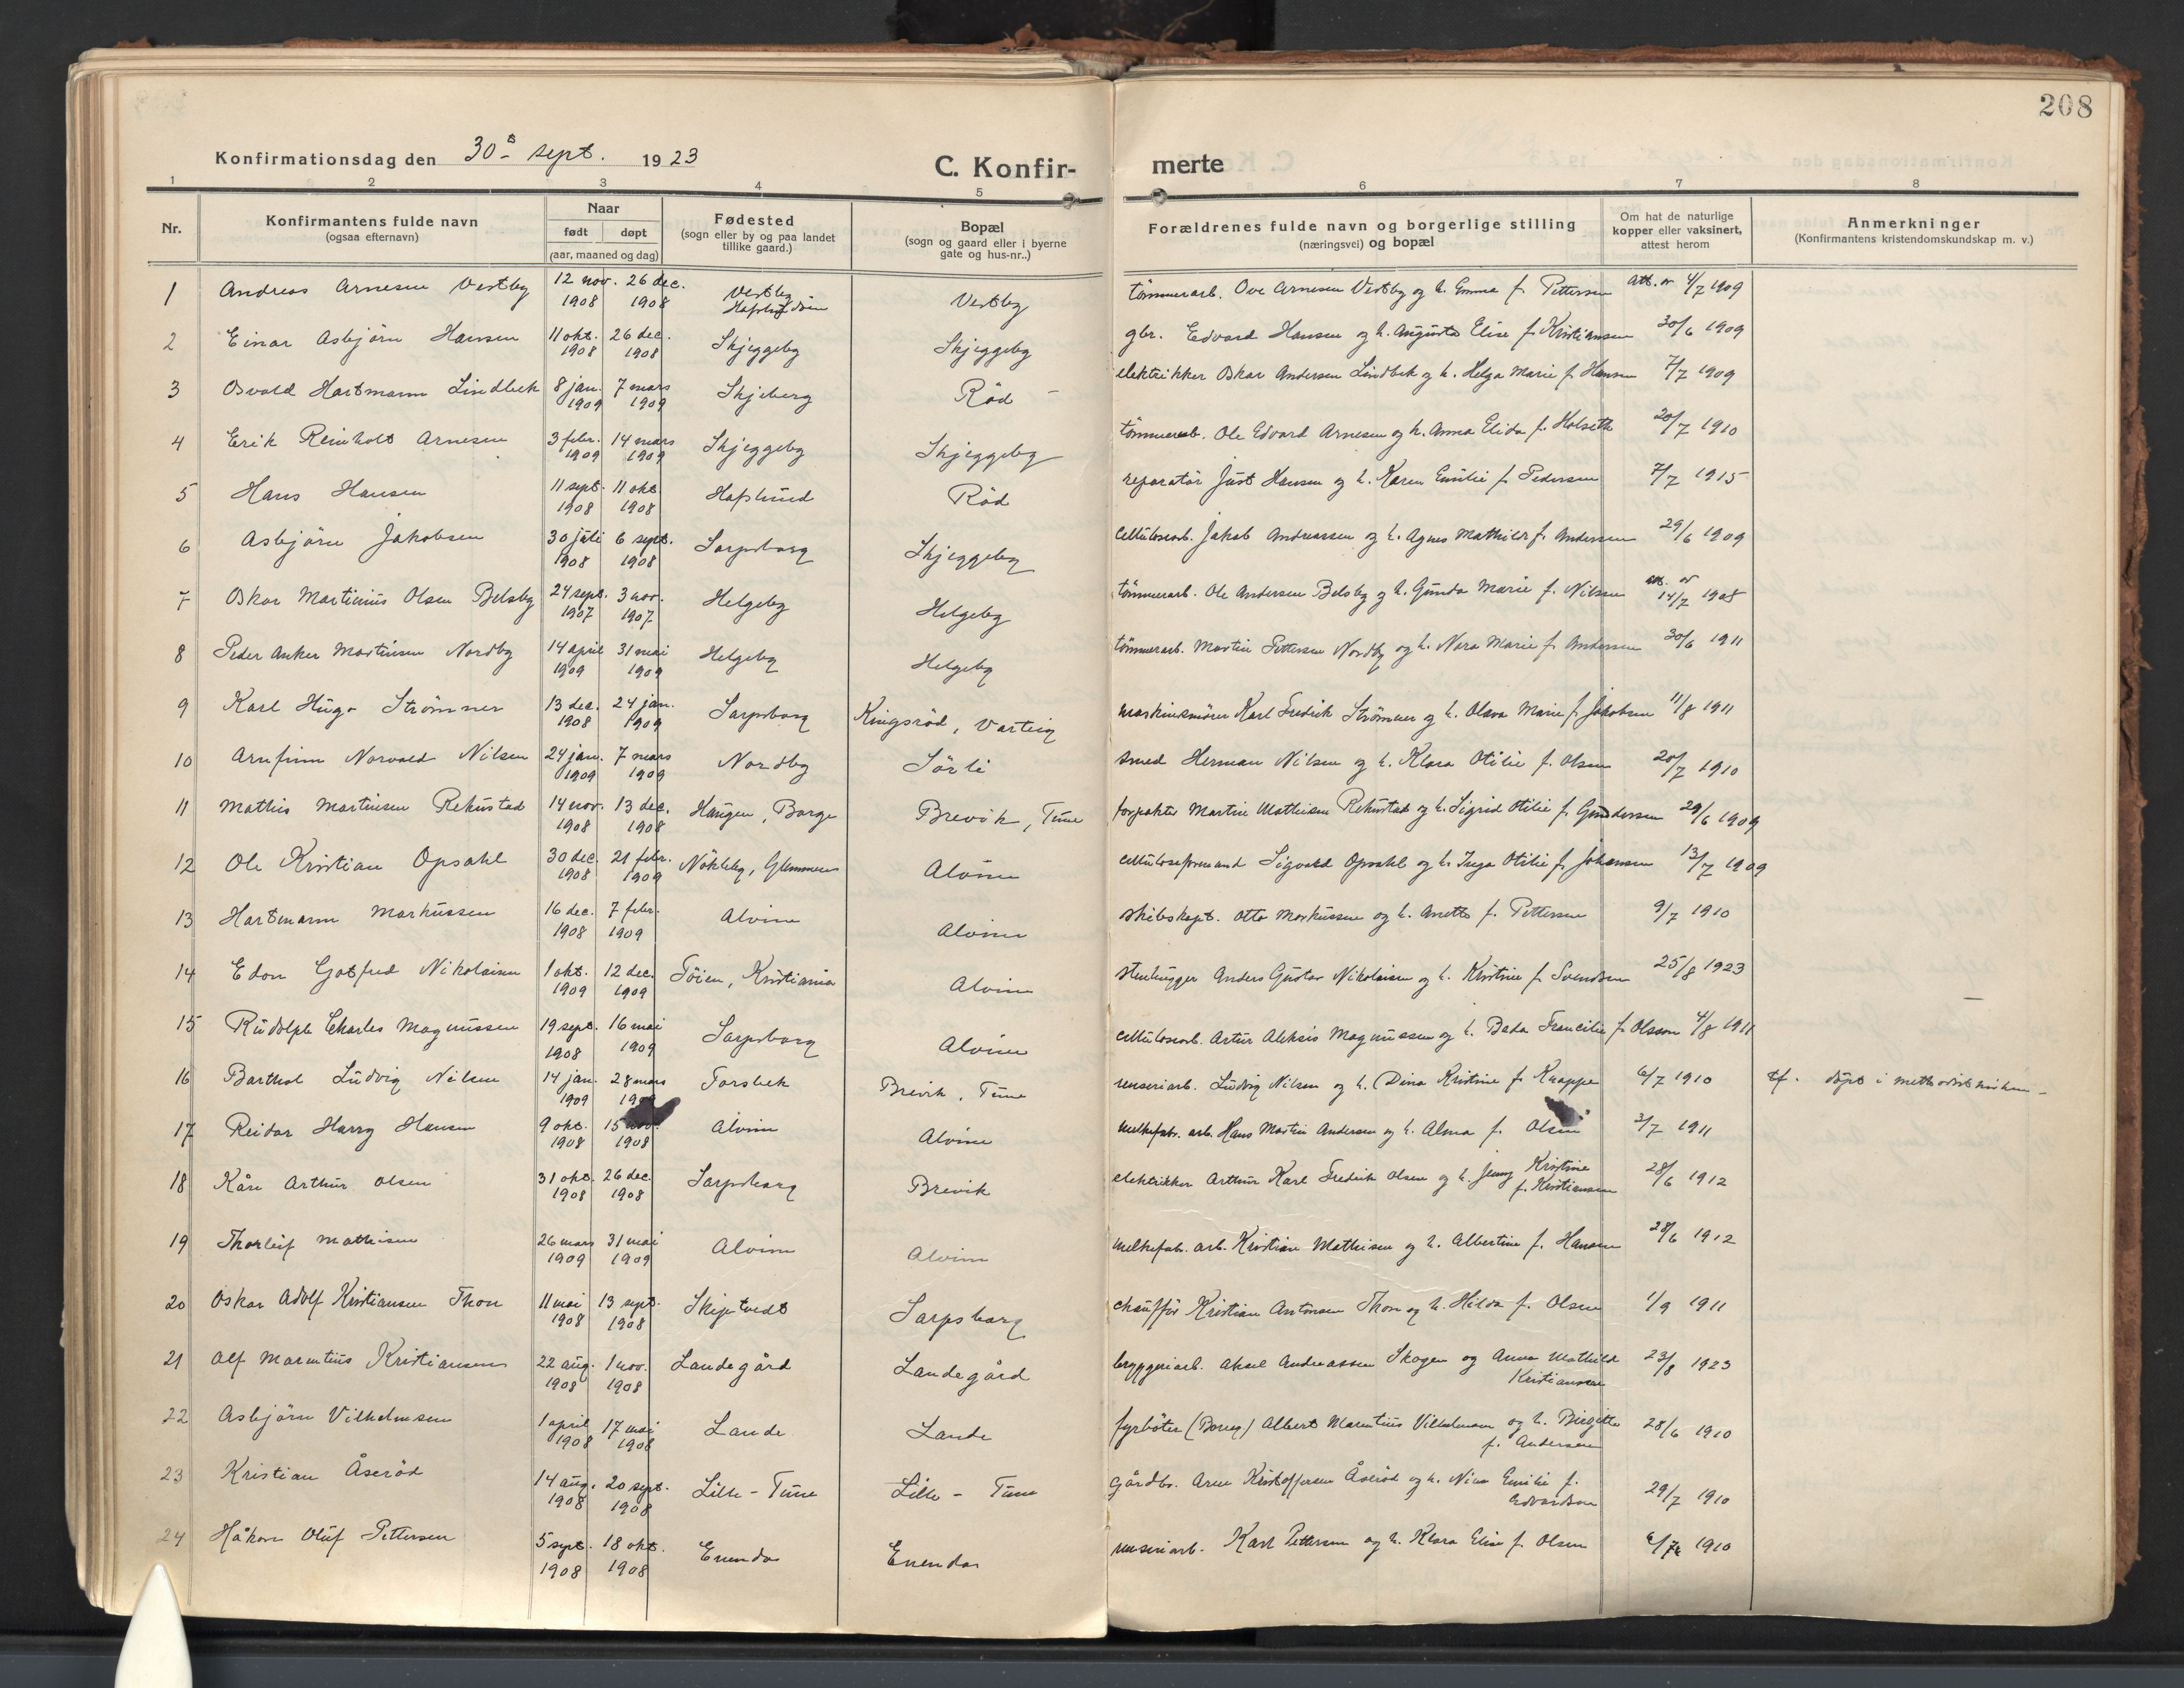 208
Konfirmationsdag den 30 sept. 1923
C. Konfir-
merte
1 2 3 4 5 6 7 8
Nr.
Konfirmantens fulde navn
(ogsaa efternavn)
Naar
født døpt
(aar, maaned og dag)
Fødested
(sogn eller by og paa landet
tillike gaard.)
Bopæl
(sogn og gaard eller i byerne
gate og hus-nr..)
Forældrenes fulde navn og borgerlige stilling
(næringsvei) og bopæl
Om hat de naturlige
kopper eller vaksinert,
attest herom
Anmerkninger
(Konfirmantens kristendomskundskap m. v.)
1 Andreas Arnesen Vestby 12 nov. 1908 26 dec. 1908 Vestby Vestby tömmerarb. Ove Arnesen Vestby og h. Emma f. Pettersen att. av 4/7 1909
2 Einar Asbjörn Hansen 11 okt. 1908 26 dec. 1908 Skjeggeby Skjeggeby gbr. Edvard Hansen og h. Augusta Elise f. Kristiansen 30/6 1909
3 Osvald Hartmann Lindbek 8 jan. 1909 7 mars 1909 Skjeberg Röd elektrikker Oskar Andersen Lindbek og h. Helga Marie f. Hansen 7/7 1909
4 Erik Reinholt Arnesen 3 febr. 1909 14 mars 1909 Skjeggeby Skjeggeby tömmerarb. Ole Edvard Arnesen og h. Anna Elida f. Holseth 20/7 1910
5 Hans Hansen 11 sept. 1908 11 okt. 1908 Hafslund Röd reparatör Just Hansen og h. Karen Emilie f. Pedersen 7/7 1915
6 Asbjörn Jakobsen 30 juli 1908 6 sept. 1908 Sarpsborg Skjeggeby cellulosearb. Jakob Andreassen og h. Agnes Mathilde f. Andersen 29/6 1909
7 Oskar Martinius Olsen Belsby 24 sept. 1907 3 nov. 1907 Helgeby Helgeby tömmerarb. Ole Andersen Belsby og h. Gunda Marie f. Nilsen att. av 14/7 1908
8 Peder Anker Martinsen Nordby 14 april 1909 31 mai 1909 Helgeby Helgeby tömmerarb. Martin Pettersen Nordby og h. Nora Marie f. Andersen 30/6 1911
9 Karl Hugo Strömner 13 dec. 1908 24 jan. 1909 Sarpsborg Kingsröd, Varteig maskinsmörer Karl Fredrik Strömner og h. Olava Marie f. Jakobsen 11/8 1911
10 Arnfinn Norvald Nilsen 24 jan. 1909 7 mars 1909 Nordby Sörli smed Herman Nilsen og h. Klara Otilie f. Olsen 20/7 1910
11 Mathis Martinsen Rekustad 14 nov. 1908 13 dec. 1908 Haugen, Borge Brevik, Tune forpakter Martin Mathisen Rekustad og h. Sigrid Otilie f. Gundersen 29/6 1909
12 Ole Kristian Opsahl 30 dec. 1908 21 febr. 1909 Nökleby, Glemmen Alvim celluloseformand Sigvald Opsahl og h. Inga Otilie f. Johansen 13/7 1909
13 Hartmann Markussen 16 dec. 1908 7 febr. 1909 Alvim Alvim skibskapt. Otto Markussen og h. Anette f. Pettersen 9/7 1910
14 Edon Gotfred Nikolaisen 1 okt. 1909 12 dec. 1909 Töien, Kristiania Alvim stenhugger Anders Gustav Nikolaisen og h. Kristine f. Svendsen 25/8 1923
15 Rudolph Charles Magnussen 19 sept. 1908 16 mai 1909 Sarpsborg Alvim cellulosearb. Artur Aleksis Magnussen og h. Beda f. Olsson 4/8 1911
16 Barthol Ludvig Nilsen 14 jan. 1909 28 mars 1909 Torsbek Brevik, Tune renseriarb. Ludvig Nilsen og h. Dina Kristine f. Knappe 6/7 1910 döpt i methodistkirken
17 Reidar Harry Hansen 9 okt. 1908 15 nov. 1908 Alvim Alvim melkefabr. arb. Hans Martin Andersen og h. Alma f. Olsen 3/7 1911
18 Kåre Arthur Olsen 31 okt. 1908 26 dec. 1908 Sarpsborg Brevik elektrikker Arthur Karl Fredrik Olsen og h. Jenny Kristine f. Kristiansen 28/6 1912
19 Thorleif Mathisen 26 mars 1909 31 mai 1909 Alvim Alvim melkefab. arb. Kristian Mathisen og h. Albertine f. Hansen 28/6 1912
20 Oskar Adolf Kristiansen Thon 11 mai 1908 13 sept. 1908 Skiptvedt Sarpsborg chaufför Kristian Antonsen Thon og h. Hilda f. Olsen 1/9 1911
21 Alf Marentius Kristiansen 22 aug. 1908 1 nov. 1908 Landegård Landegård bryggeriarb. Aksel Andreassen Skogen og Anna Mathilde Kristiansen 23/8 1923
22 Asbjörn Vilhelmsen 1 april 1908 17 mai 1908 Lande Lande fyrböter (Borreg) Albert Marentius Vilhelmsen og h. Birgitte f. Andersen 28/6 1910
23 Kristian Åseröd 14 aug. 1908 20 sept. 1908 Lille-Tune Lille-Tune gårdbr. Arne Kristoffersen Åseröd og h. Nina Emilie f. Edvardsen 29/7 1910
24 Håkon Oluf Pettersen 5 sept. 1908 18 okt. 1908 Enenda Enenda renseriarb. Karl Pettersen og h. Klara Elise f. Olsen 6/7 1910